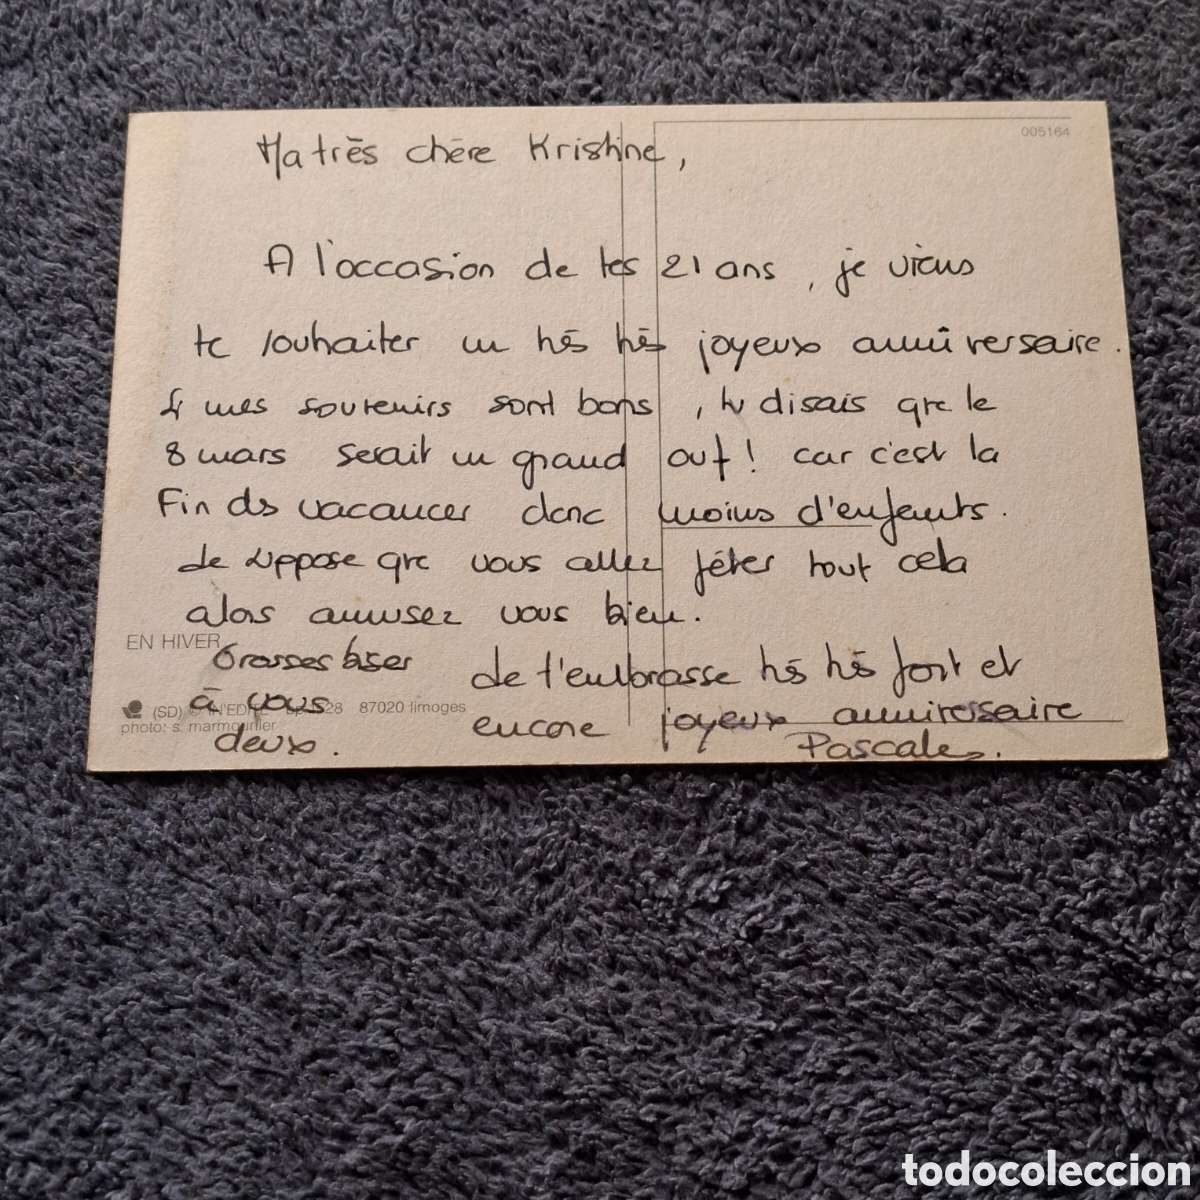 005164
Ma très chère Kristine,
A l'occasion de tes 21 ans, je viens
te souhaiter un très très joyeux anniversaire.
Si mes souvenirs sont bons, tu disais que le
8 mars serait un grand ouf! car c'est la
Fin des vacances donc moins d'enfants.
Je suppose que vous allez fêter tout cela
alors amusez vous bien.
EN HIVER
Grosses bises
à vous
deux.
Je t'embrasse très très fort et
encore joyeux anniversaire
Pascale.
(SD) 87020 limoges
photo: s. marmounier
todocoleccion